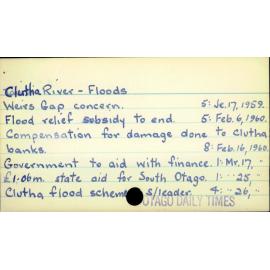 Clutha River - Floods
Weirs Gap concern. 5: Je. 17, 1959.
Flood relief subsidy to end. 5: Feb. 6, 1960.
Compensation for damage done to Clutha
banks. 8: Feb. 16, 1960.
Government to aid with finance. 1: Mr. 17, "
£1.06m. state aid for South Otago. 1: " 25, "
Clutha flood scheme s/leader. 4: " 26, "
OTAGO DAILY TIMES